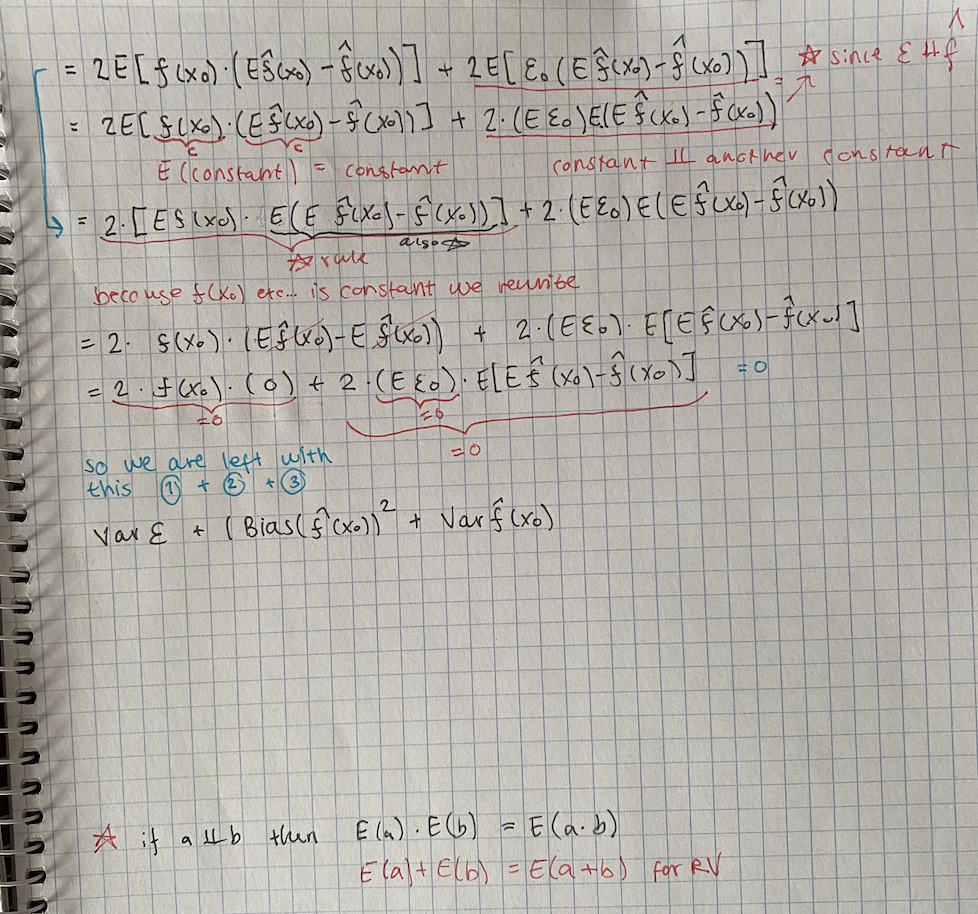 = 2E[f(x₀)·(Ef̂(x₀) - f̂(x₀))] + 2E[ε₀(Ef̂(x₀) - f̂(x₀))] ☆ since ε ⫫ f̂
= 2E[f(x₀)·(Ef̂(x₀) - f̂(x₀))] + 2·(Eε₀)E(Ef̂(x₀) - f̂(x₀))
c c
E(constant) = constant constant ⫫ another constant
= 2·[Ef(x₀)· E(E f̂(x₀) - f̂(x₀))] + 2·(Eε₀)E(Ef̂(x₀) - f̂(x₀))
also ☆
☆ rule
because f(x₀) etc... is constant we rewrite
= 2· f(x₀)·(Ef̂(x₀) - E f̂(x₀)) + 2·(Eε₀)· E[Ef̂(x₀) - f̂(x₀)]
= 2 · f(x₀)·(0) + 2·(Eε₀)·E[Ef̂(x₀) - f̂(x₀)] = 0
=0 =0
=0
so we are left with
this ① + ② + ③
Var ε + (Bias(f̂(x₀))² + Var f̂(x₀)
☆ if a ⫫ b then E(a)·E(b) = E(a·b)
E(a) + E(b) = E(a+b) for RV